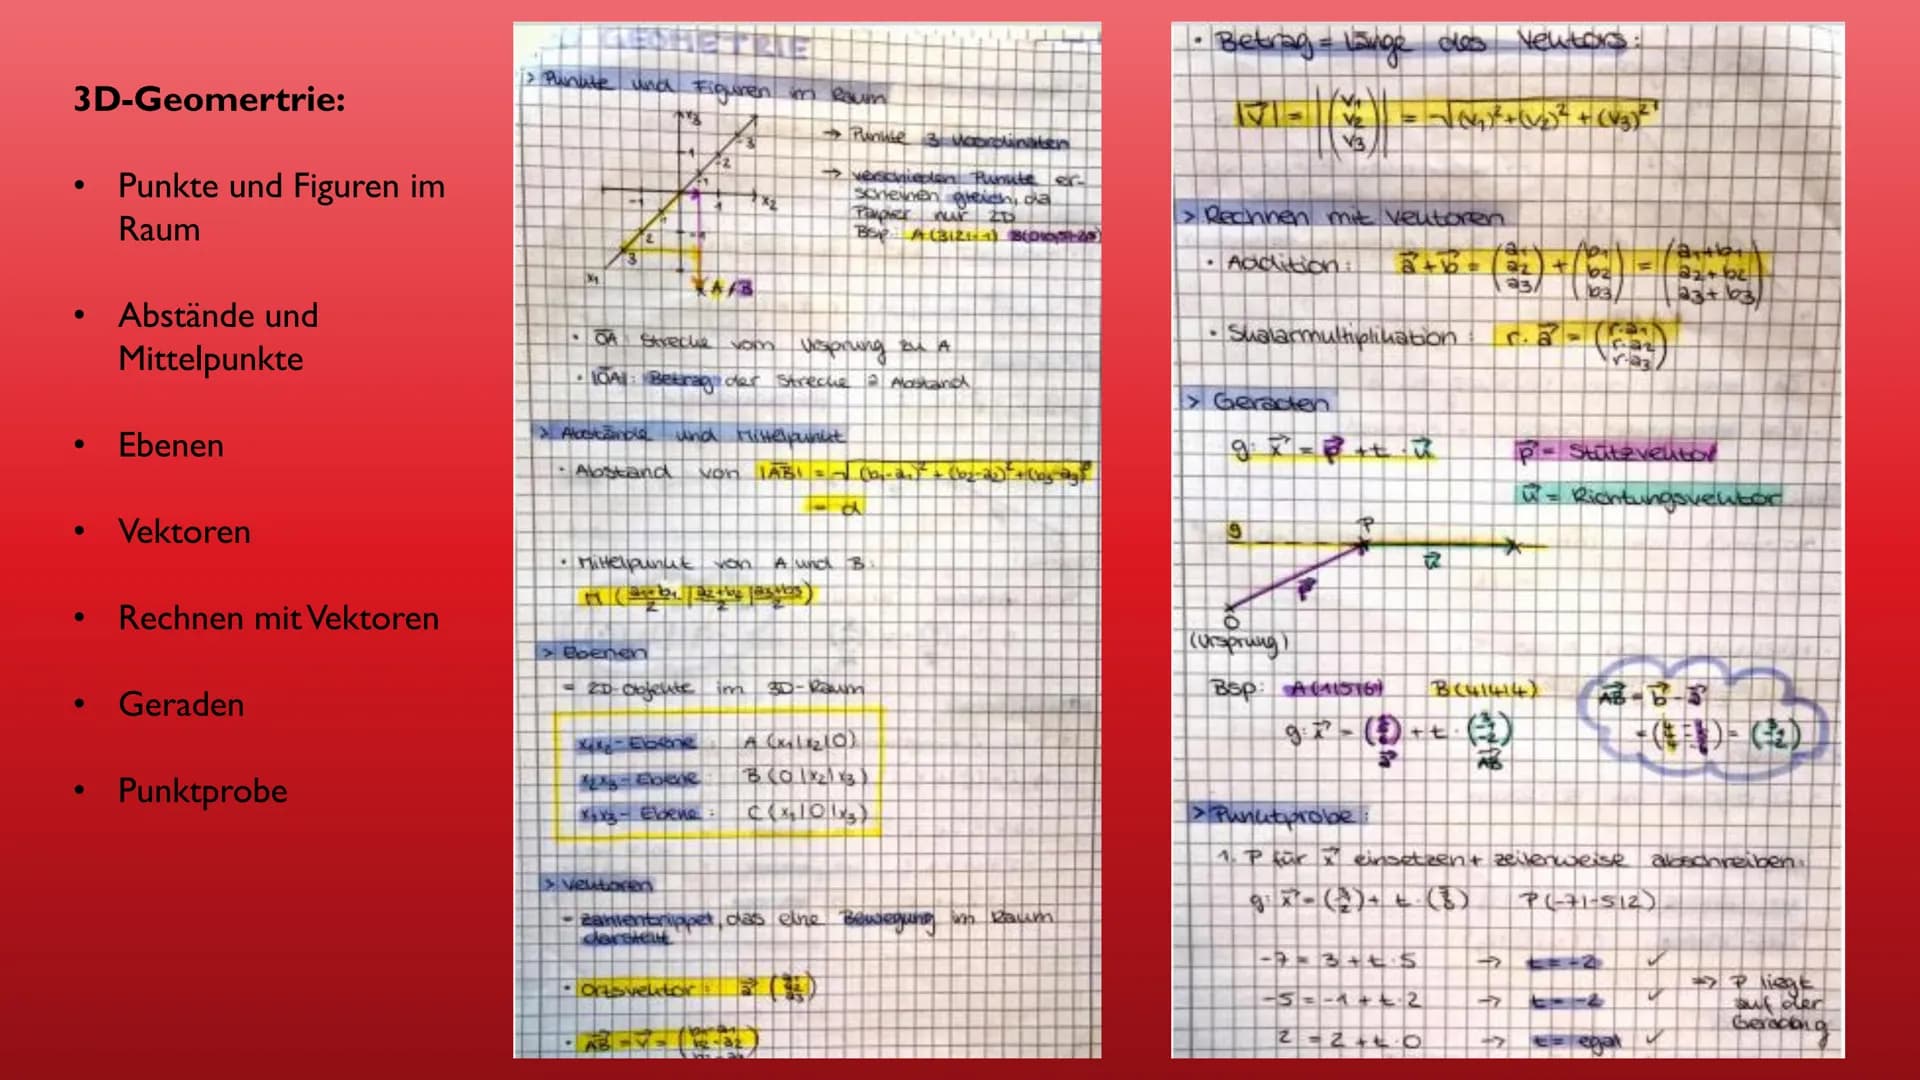 3D-Geomertrie:
• Punkte und Figuren im
Raum
• Abstände und
Mittelpunkte
• Ebenen
• Vektoren
• Rechnen mit Vektoren
• Geraden
• Punktprobe
GEOMETRIE
> Punkte und Figuren im Raum
→ Punkte 3 Koordinaten
→ verschieden Punkte er-
scheinen gleich, da
Papier nur 2D
Bsp: A(3|2|-1)
x₃
x₂
x₁
A/B
• OA: Strecke vom Ursprung zu A
• |OA|: Betrag der Strecke ≙ Abstand
> Abstände und Mittelpunkt
• Abstand von |AB| = √(b₁-a₁)² + (b₂-a₂)² + (b₃-a₃)²
= d
• Mittelpunkt von A und B:
M (a₁+b₁/2 | a₂+b₂/2 | a₃+b₃/2)
> Ebenen
= 2D-Objekte im 3D-Raum
x₁x₂-Ebene: A (x₁|x₂|0)
x₂x₃-Ebene: B (0|x₂|x₃)
x₁x₃-Ebene: C (x₁|0|x₃)
> Vektoren
- Zahlentrippel, das eine Bewegung im Raum
darstellt
• Ortsvektor: a⃗ (a₁ a₂ a₃)
• AB⃗ = v⃗ = (b₁-a₁ b₂-a₂ b₃-a₃)
• Betrag = Länge des Vektors:
|v⃗| = |(v₁ v₂ v₃)| = √(v₁)²+(v₂)²+(v₃)²
> Rechnen mit Vektoren
• Addition: a⃗+b⃗ = (a₁ a₂ a₃) + (b₁ b₂ b₃) = (a₁+b₁ a₂+b₂ a₃+b₃)
• Skalarmultiplikation: r·a⃗ = (r·a₁ r·a₂ r·a₃)
> Geraden
g: x⃗ = p⃗ + t·u⃗
p⃗ = Stützvektor
u⃗ = Richtungsvektor
g
P
u⃗
p⃗
O
(Ursprung)
Bsp: A(1|5|6) B(4|4|4)
AB⃗ = b⃗ - a⃗
> Punktprobe:
1. P für x⃗ einsetzen + zeilenweise abschreiben:
P(-7|-5|2)
-7 = 3 + t·5 → t = -2 ✓
-5 = -1 + t·2 → t = -2 ✓
2 = 2 + t·0 → t = egal ✓
=> P liegt
auf der